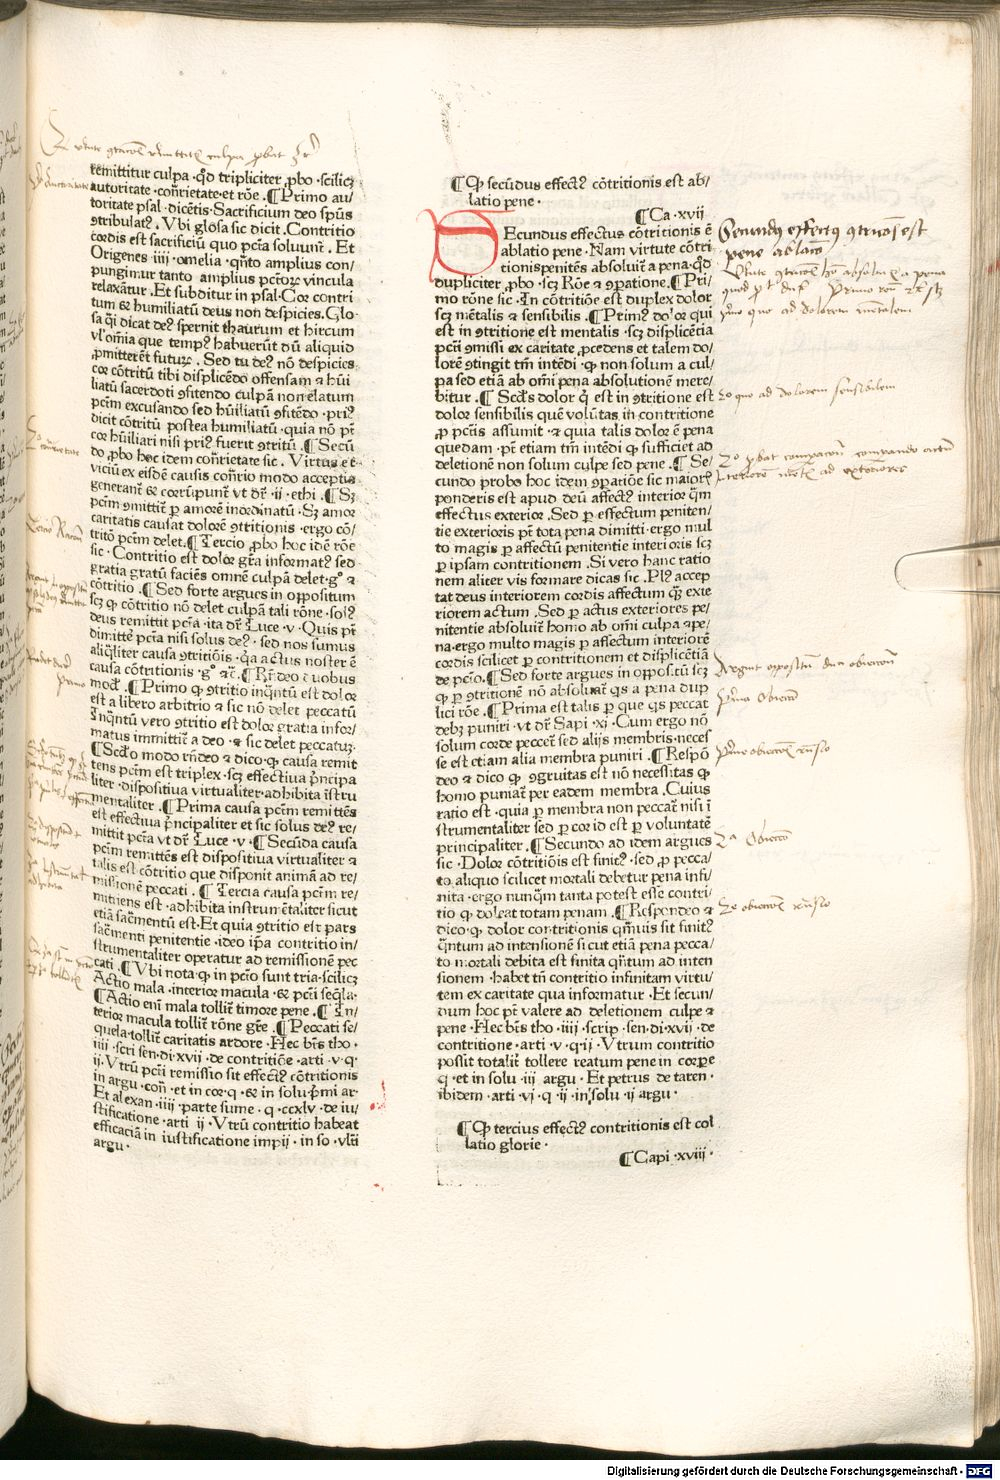 remittitur culpa · qđ tripliciter ꝓbo · scilicꝫ
autoritate ·cōrietate·et rōe .¶ Primo au/
toritate psal· dicētis· Sacrificium deo spūs
ꝯtribulatꝰ. Vbi glōsa sic dicit .Contritio
cordis est sacrificiū quo pctā soluunt̄ . Et
Origenes ·iiij· omelia ·qn̄to amplius con/
pungimur tanto amplius pctōꝝ vincula
relaxātur . Et subditur in psal· Cor contri
tum & humiliatū deus non despicies. Glo/
sa q̄i dicat deꝰ spernit thaurum et hircum
vl' om̄ia que tempꝰ habuerūt dū aliquid
ꝓmitterēt futuꝝ . Sed tu deꝰ nō despicies
cor cōtritū tibi displicēdo offensam ꝛ hūi
liatū sacerdoti ꝯfitendo culpā non elatum
pctm̄ excusando sed hūiliatū ꝯfitēdo . priꝰ
dicit cōtritū postea humiliatū · quia nō pt̄
cor hūiliari nisi priꝰ fuerit ꝯtritū .¶ Secū
do ꝓbo hoc idem cōrietate sic . Virtus et
viciū ex eisdē causis con̄rio modo acceptis
generant̄ & corrūpunt̄ vt dr̄ ·ii· ethi .¶ Sꝫ
pctm̄ ꝯmittit̄ ꝑ amorē inordinatū · Sꝫ amor
caritatis causat dolorē ꝯtritionis · ergo cō/
tritō pctm̄ delet.¶ Tercio ꝓbo hoc idē rōe
sic · Contritio est dolor gr̄a informatꝰ sed
gratia gratū faciēs omnē culpā delet·gͦ &
cōtritio .¶ Sed forte argues in oppositum
scꝫ ꝙ cōtritio nō delet culpā tali rōne · solꝰ
deus remittit pctā ·ita dr̄ Luce ·v· Quis pt̄
dimittē pctā nisi solus deꝰ· sed nos sumus
aliq̄liter causa ꝯtritiōis ·q̄a actus noster ē
causa cōtritionis ·gͦ ꝛc̄ .¶ Rn̄deo duobus
modꝭ .¶ Primo ꝙ ꝯtritio inq̄ntū est dolor
est a libero arbitrio & sic nō delet peccatū
Inq̄ntū vero ꝯtritio est dolor gratia infor/
matus immittit̄ a deo · & sic delet peccatuꝫ·
¶ Scd̄o modo rn̄deo & dico·ꝙ causa remit
tens pctm̄ est triplex · scꝫ effectiua p̄ncipa
liter ·dispositiua virtualiter·adhibita īstru
mentaliter .¶ Prima causa pctm̄ remittēs
est effectiua p̄ncipaliter et sic solus deꝰ re/
mittit pctā vt dr̄ Luce ·v· ¶ Secūda causa
pctm̄ remittēs est dispositiua virtualiter &
talis est cōtritio que disponit animā ad re/
missionē peccati .¶ Tercia causa pctm̄ re/
mittens est ·adhibita instrumētaliter sicut
etiā sac̄mentū est·Et quia ꝯtritio est pars
sac̄menti penitentie ·ideo ip̄a contritio in/
strumentaliter operatur ad remissionē pec
cati .¶ Vbi nota·ꝙ in pctō sunt tria·scilicꝫ
Actio mala ·interior macula ·& pcti seq̄la·
¶ Actio eni mala tollit̄ timore pene .¶ In/
terior macula tollit̄ rōne gr̄e .¶ Peccati se/
quela·tollit̄ caritatis ardore · Hec bt̄s tho·
iiij ·scri sen·di·xvij ·de contritiōe · arti ·v·q·
ij· Vtrū pcti remissio sit effectꝰ cōtritionis
in argu ·con̄ ·et in cor·q ·& in solu·p̄mi ar·
Et alexan ·iiij ·parte sume · q ·ccxlv· de iu/
stificatione ·arti ij · Vtrū contritio habeat
efficaciā in iustificatione impij · in so ·vlti
argu ·
¶ Ꝙ secūdus effectꝰ cōtritionis est ab/
latio pene ·
¶ Ca ·xvij
SEcundus effectus cōtritionis ē
ablatio pene · Nam virtute cōtri
tionis penitēs absoluit̄ a pena·qđ
dupliciter ꝓbo ·scꝫ Rōe & ꝯparatione .¶ Pri/
mo rōne sic ·In cōtritiōe est duplex dolor
scꝫ mētalis & sensibilis .¶ Primꝰ dolor qui
est in ꝯtritione est mentalis ·scꝫ displicētia
pcti ꝯmissi ex caritate ꝓcedens et talem do/
lorē ꝯtingit tm̄ intēdi ·ꝙ non solum a cul/
pa sed etiā ab omi pena absolutionē mere/
bitur .¶ Scd̄s dolor q̄ est in ꝯtritione est
dolor sensibilis quē volūtas in contritione
ꝓ pctis assumit ·& quia talis dolor ē pena
quedam · pt̄ etiam tm̄ intēdi ꝙ sufficiet ad
deletionē non solum culpe sed pene .¶ Se/
cundo probo hoc idem ꝯpariōe sic maioris
ponderis est apud deū affectꝰ interior q̄m
effectus exterior . Sed ꝑ effectum peniten/
tie exterioris pt̄ tota pena dimitti · ergo mul
to magis ꝑ affectū penitentie interioris scꝫ
ꝑ ipsam contritionem . Si vero hanc ratio
nem aliter vis formare dicas sic . Plꝰ accep
tat deus interiorem cordis affectum q̄ꝫ exte
riorem actum . Sed ꝑ actus exteriores pe/
nitentie absoluit̄ homo ab omi culpa &pe/
na·ergo multo magis ꝑ affectum interiorē
cordis scilicet ꝑ contritionem et displicētiā
de pctō .¶ Sed forte argues in oppositū scꝫ
ꝙ ꝑ ꝯtritionē nō absoluat̄ q̄s a pena dup
lici rōe .¶ Prima est talis ꝑ que q̄s peccat
debꝫ puniri ·vt dr̄ Sapi ·xj· Cum ergo nō
solum corde peccet̄ sed alijs membris·neces
se est etiam alia membra puniri .¶ Respō
deo & dico ꝙ ꝯgruitas est nō necessitas ꝙ
homo puniat̄ per eadem membra . Cuius
ratio est ·quia ꝑ membra non peccat̄ nisi ī
strumentaliter sed ꝑ cor id est ꝑ voluntatē
principaliter .¶ Secundo ad idem argues
sic ·Dolor cōtritiōis est finitꝰ · sed ꝓ pecca/
to aliquo scilicet mortali debetur pena infi/
nita ·ergo nunq̄m tanta potest esse contri/
tio ꝙ doleat totam penam .¶ Respondeo &
dico ·ꝙ dolor contritionis q̄muis sit finitꝰ
q̄ntum ad intensionē sicut etiā pena pecca/
to mortali debita est finita q̄ntum ad inten
sionem ·habet tn̄ contritio infinitam virtu/
tem ex caritate qua informatur · Et secun/
dum hoc pt̄ valere ad deletionem culpe &
pene · Hec bt̄s tho ·iiij ·scrip ·sen·di·xvij ·de
contritione · arti ·v · q·ij · Vtrum contritio
possit totalit̄ tollere reatum pene in corpe
q ·et in solu ·iij argu · Et petrus de taren ·
ibidem ·arti ·vj ·q ·ij ·in solu ·ij argu ·
¶ Ꝙ tercius effectꝰ contritionis est col
latio glorie ·
¶ Capi ·xviij ·
Secundus effectus ꝯtricionis est
pene ablatio
Primo obiectio
Digitalisierung gefördert durch die Deutsche Forschungsgemeinschaft - DFG